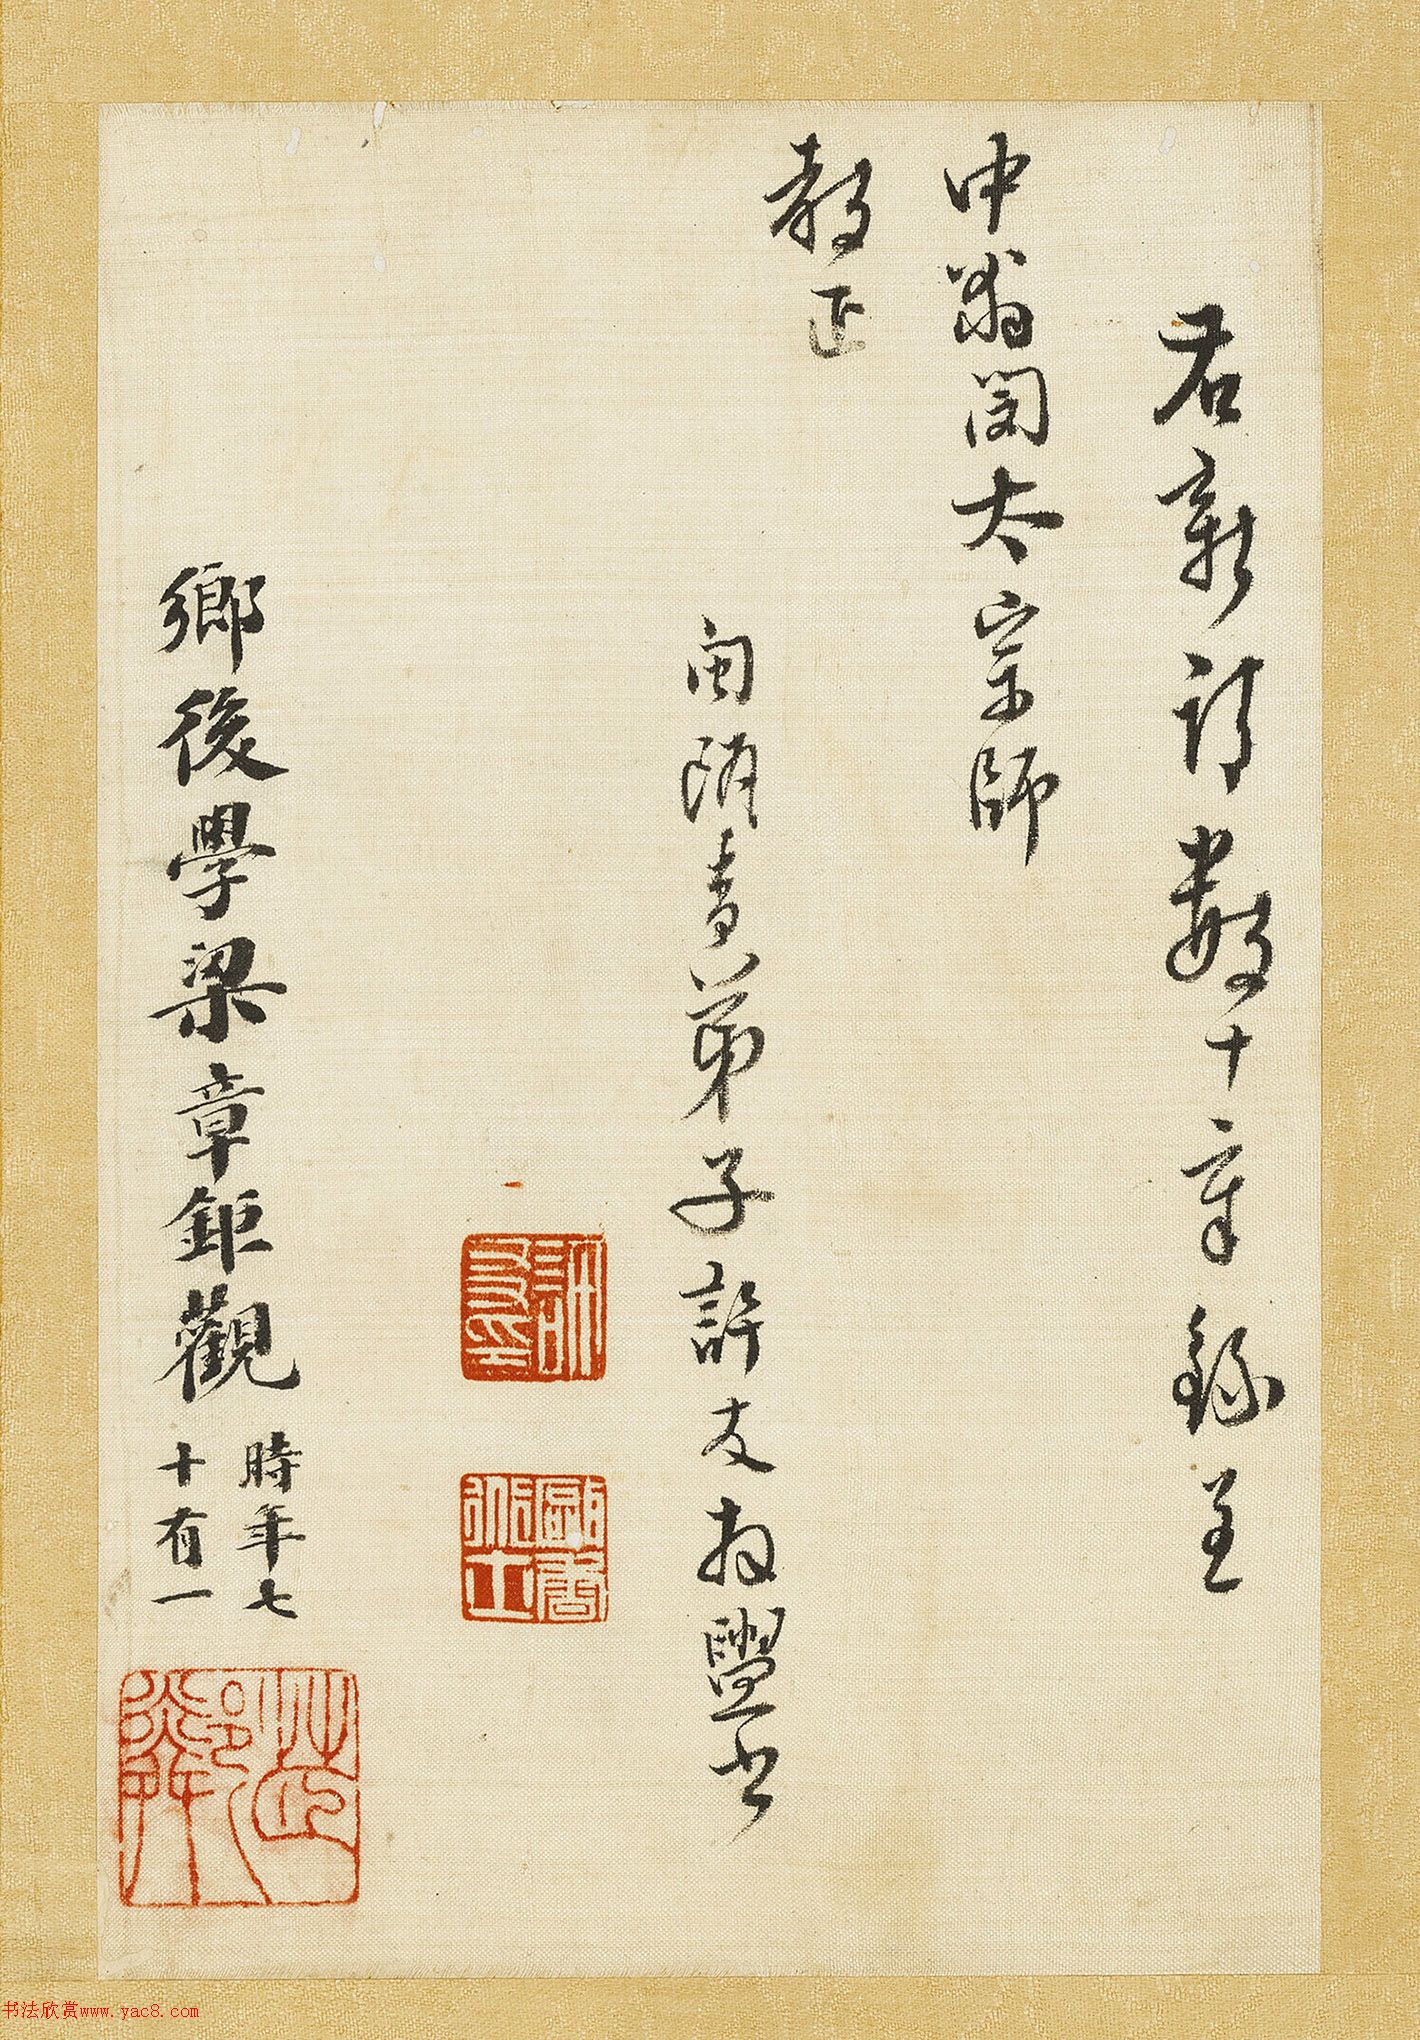 君新詩數十章錄呈
中翁閔太宗師
教正
閩弟子許友拜盥書
鄉後學梁章鉅觀
時年七
十有一
茝鄰
书法欣赏www.yac8.com